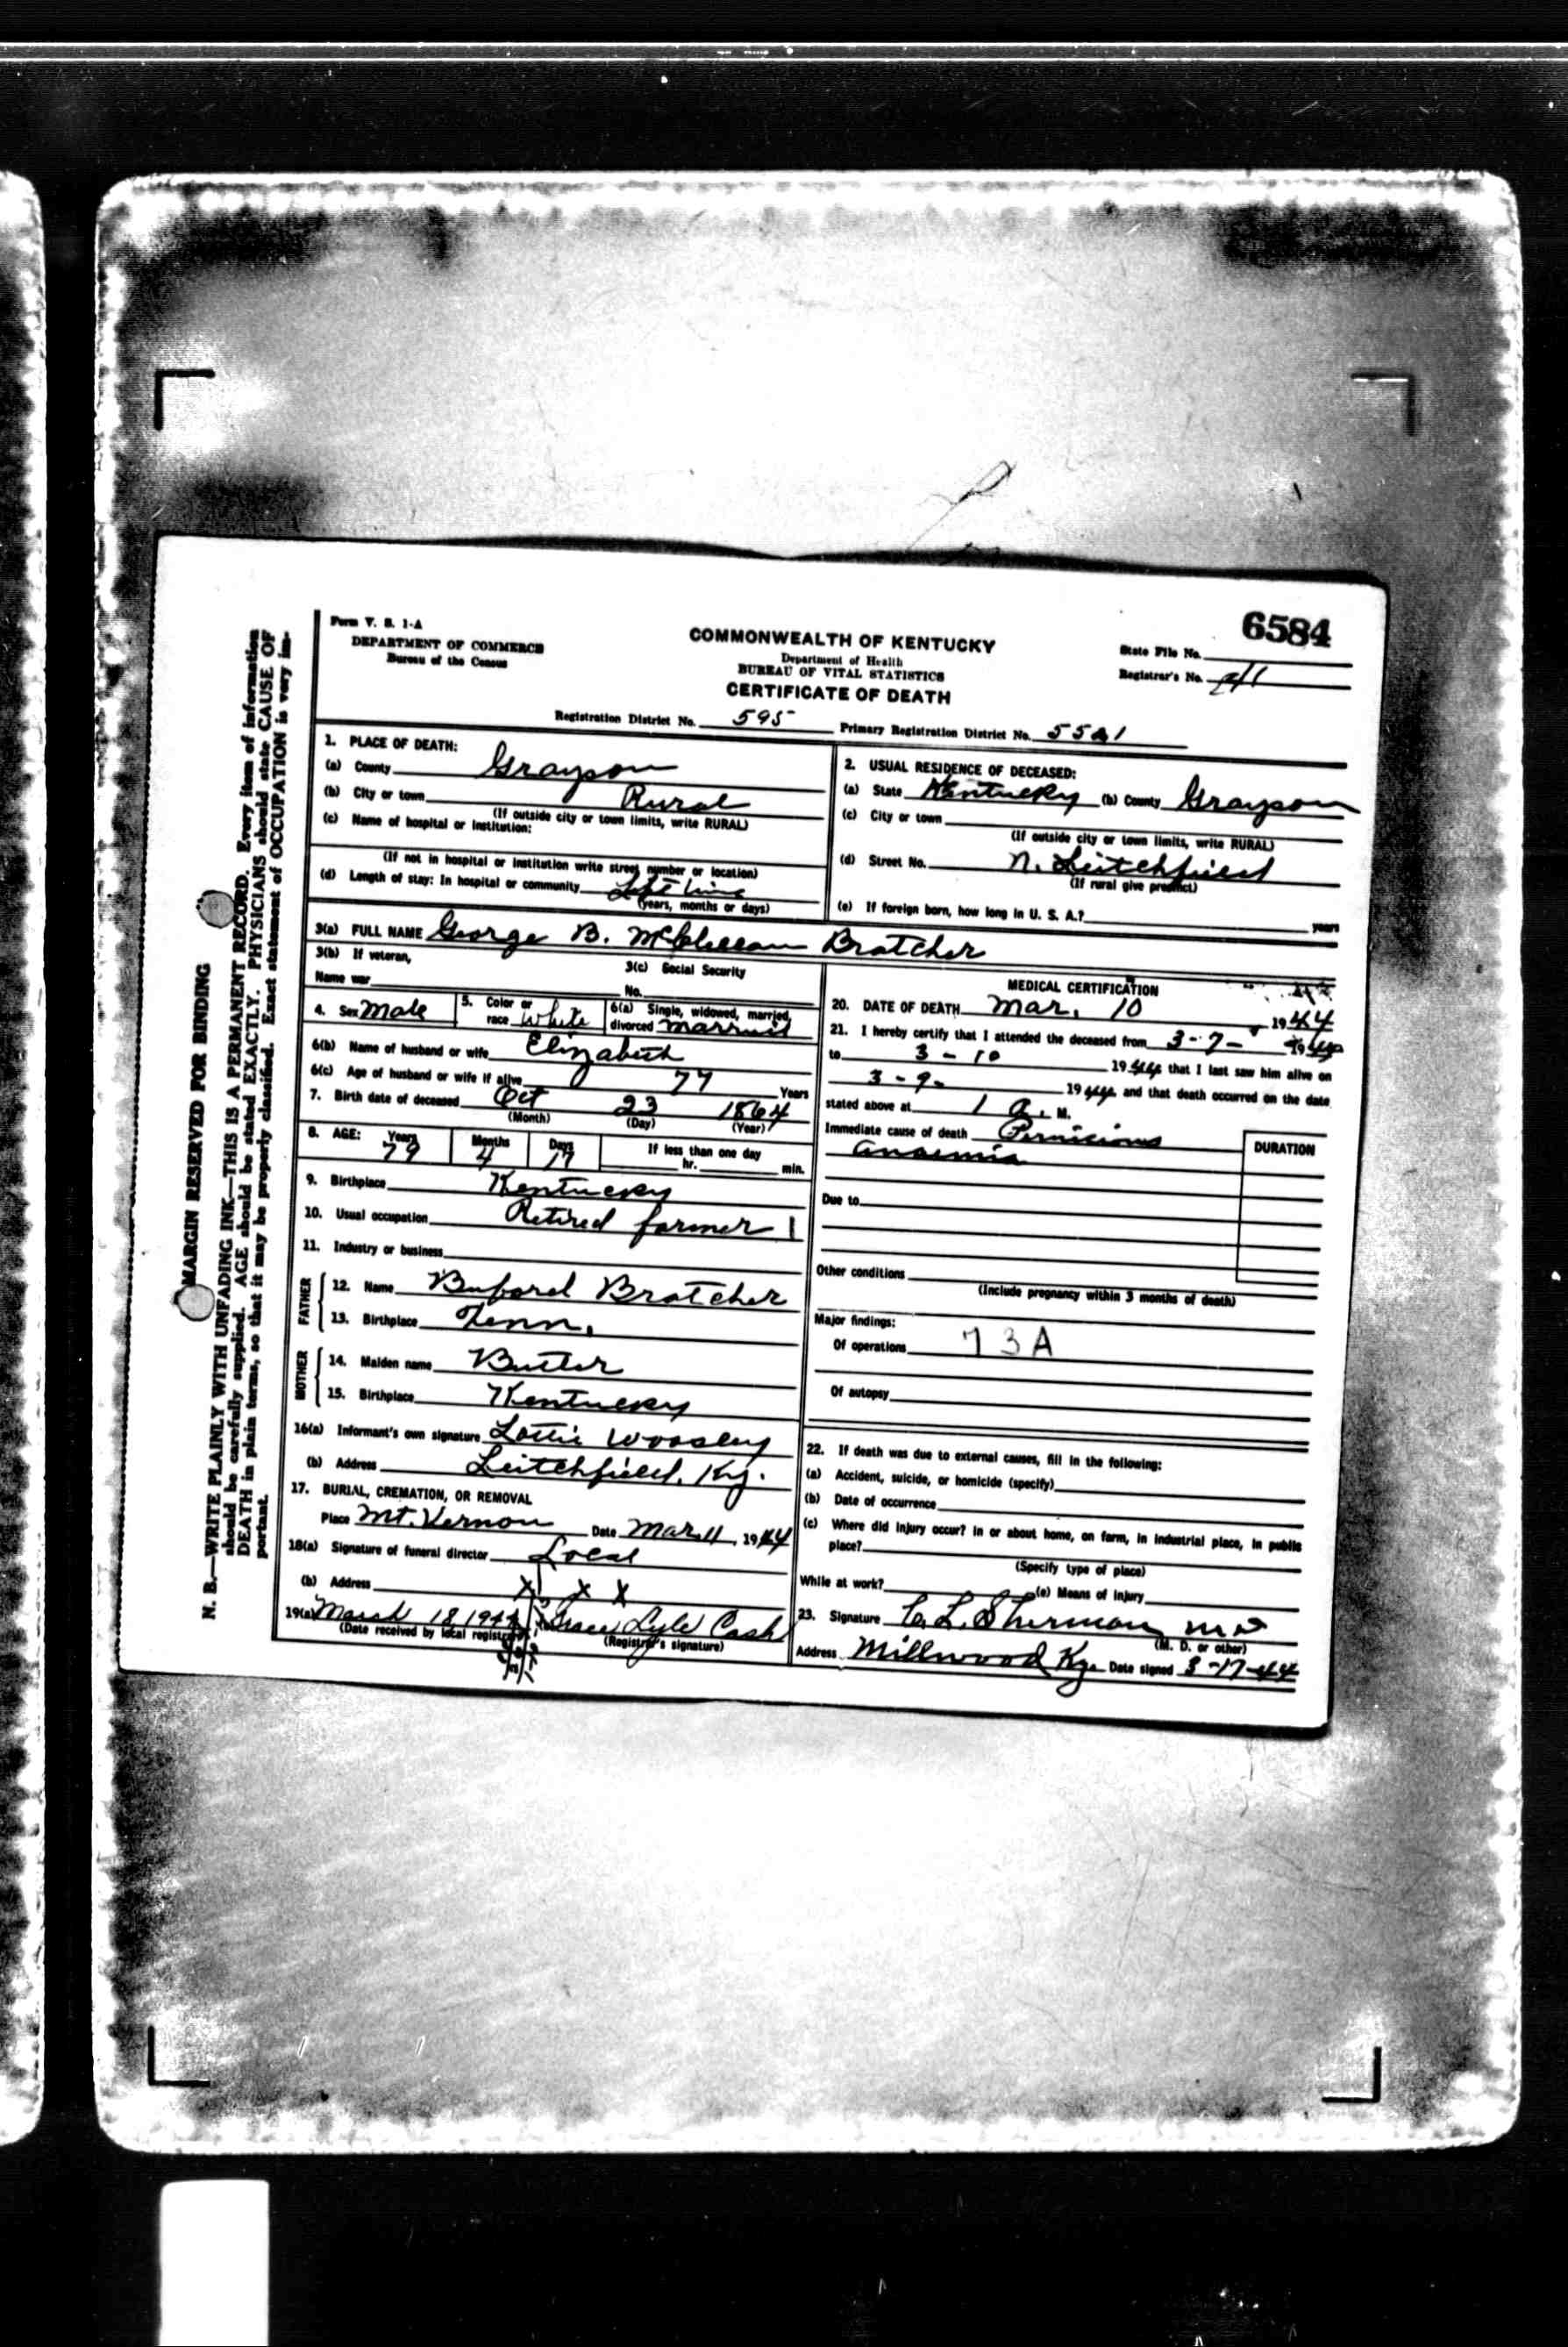 6584
Form V. S. 1-A
DEPARTMENT OF COMMERCE
Bureau of the Census
COMMONWEALTH OF KENTUCKY
Department of Health
BUREAU OF VITAL STATISTICS
CERTIFICATE OF DEATH
State File No.
Registrar's No.
Registration District No. 595 Primary Registration District No. 5521
MARGIN RESERVED FOR BINDING
N. B.—WRITE PLAINLY WITH UNFADING INK—THIS IS A PERMANENT RECORD. Every item of information
should be carefully supplied. AGE should be stated EXACTLY. PHYSICIANS should state CAUSE OF
DEATH in plain terms, so that it may be properly classified. Exact statement of OCCUPATION is very im-
portant.
1. PLACE OF DEATH:
(a) County Grayson
(b) City or town Rural
(If outside city or town limits, write RURAL)
(c) Name of hospital or institution:
(If not in hospital or institution write street number or location)
(d) Length of stay: In hospital or community Life time
(years, months or days)
2. USUAL RESIDENCE OF DECEASED:
(a) State Kentucky (b) County Grayson
(c) City or town
(If outside city or town limits, write RURAL)
(d) Street No. N. Leitchfield
(If rural give precinct)
(e) If foreign born, how long in U. S. A.? years
3(a) FULL NAME George B. McClellan Bratcher
3(b) If veteran,
Name war
3(c) Social Security
No.
4. Sex Male 5. Color or race White 6(a) Single, widowed, married, divorced married
6(b) Name of husband or wife Elizabeth
6(c) Age of husband or wife if alive 77 Years
7. Birth date of deceased Oct 23 1864
(Month) (Day) (Year)
8. AGE: Years 79 Months 4 Days 17 If less than one day hr. min.
9. Birthplace Kentucky
10. Usual occupation Retired farmer 1
11. Industry or business
FATHER
12. Name Buford Bratcher
13. Birthplace Tenn.
MOTHER
14. Maiden name Butler
15. Birthplace Kentucky
16(a) Informant's own signature Lottie Woosley
(b) Address Leitchfield, Ky.
17. BURIAL, CREMATION, OR REMOVAL
Place Mt. Vernon Date Mar. 11, 1944
18(a) Signature of funeral director Local
(b) Address X X X
19(a) March 18, 1944 Grace Lyle Cash
(Date received by local registrar) (Registrar's signature)
MEDICAL CERTIFICATION
20. DATE OF DEATH Mar, 10 1944
21. I hereby certify that I attended the deceased from 3-7- 1944
to 3-10 1944 that I last saw him alive on
3-9- 1944 and that death occurred on the date
stated above at 1 a. M.
Immediate cause of death Pernicious
anaemia
DURATION
Due to
Other conditions
(Include pregnancy within 3 months of death)
Major findings:
Of operations 73A
Of autopsy
22. If death was due to external causes, fill in the following:
(a) Accident, suicide, or homicide (specify)
(b) Date of occurrence
(c) Where did injury occur? in or about home, on farm, in industrial place, in public
place?
(Specify type of place)
While at work? (e) Means of injury
23. Signature C. L. Sherman, MD
(M. D. or other)
Address Millwood Ky. Date signed 3-17-44